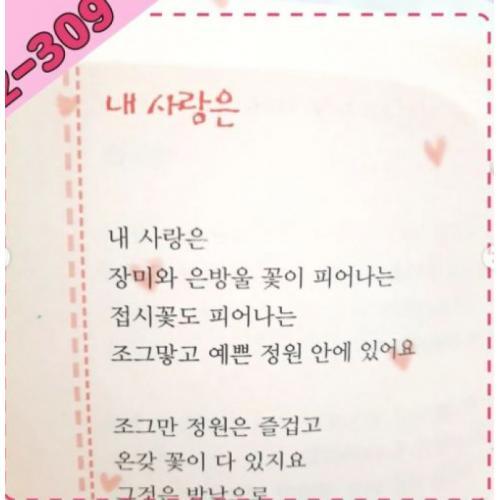 2-309
내 사랑은
내 사랑은
장미와 은방울 꽃이 피어나는
접시꽃도 피어나는
조그맣고 예쁜 정원 안에 있어요
조그만 정원은 즐겁고
온갖 꽃이 다 있지요
그것은 밤낮으로